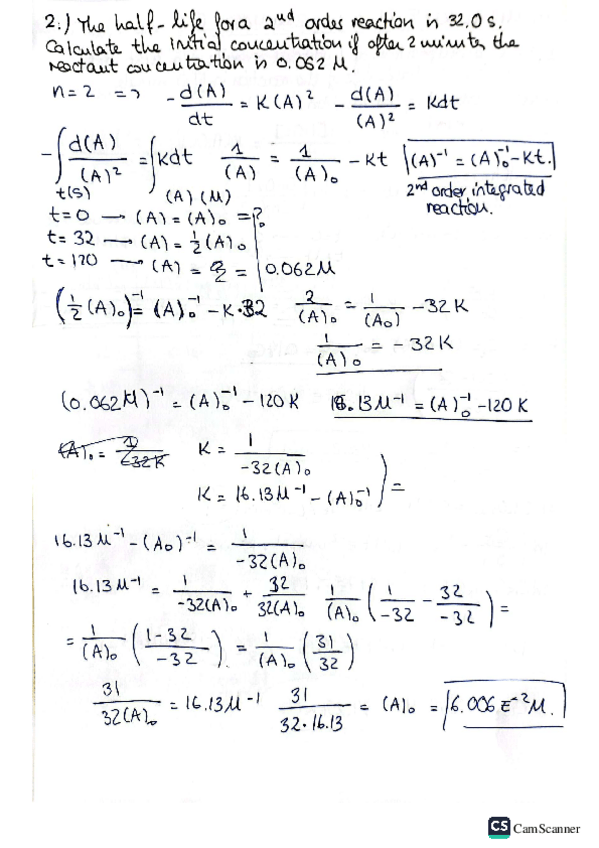 2.) The half-life for a 2nd order reaction is 32.0 s.
Calculate the initial concentration if after 2 minutes the
reactant concentration is 0.062 M.
n=2 => -d(A)/dt = K(A)² -d(A)/(A)² = Kdt
-∫d(A)/(A)² = ∫Kdt 1/(A) = 1/(A)₀ - Kt (A)⁻¹ = (A)₀⁻¹ - Kt.
t(s) (A) (M) 2nd order integrated
t=0 → (A) = (A)₀ = ? reaction.
t= 32 → (A) = ½(A)₀
t= 120 → (A) = = 0.062M
(½(A)₀)⁻¹ = (A)₀⁻¹ - K·32 2/(A)₀ = 1/(A₀) - 32K
1/(A)₀ = - 32K
(0.062M)⁻¹ = (A)₀⁻¹ - 120K 16.13M⁻¹ = (A)₀⁻¹ - 120K
(A)₀ = 1/-32K K = 1/-32(A)₀
K = 16.13M⁻¹ - (A)₀⁻¹ ) =
16.13M⁻¹ - (A₀)⁻¹ = 1/-32(A)₀
16.13M⁻¹ = 1/-32(A)₀ + 32/32(A)₀ 1/(A)₀ (1/-32 - 32/-32) =
= 1/(A)₀ (1-32/-32) = 1/(A)₀ (31/32)
31/32(A)₀ = 16.13M⁻¹ 31/32·16.13 = (A)₀ = 6.006E⁻²M.
CS CamScanner